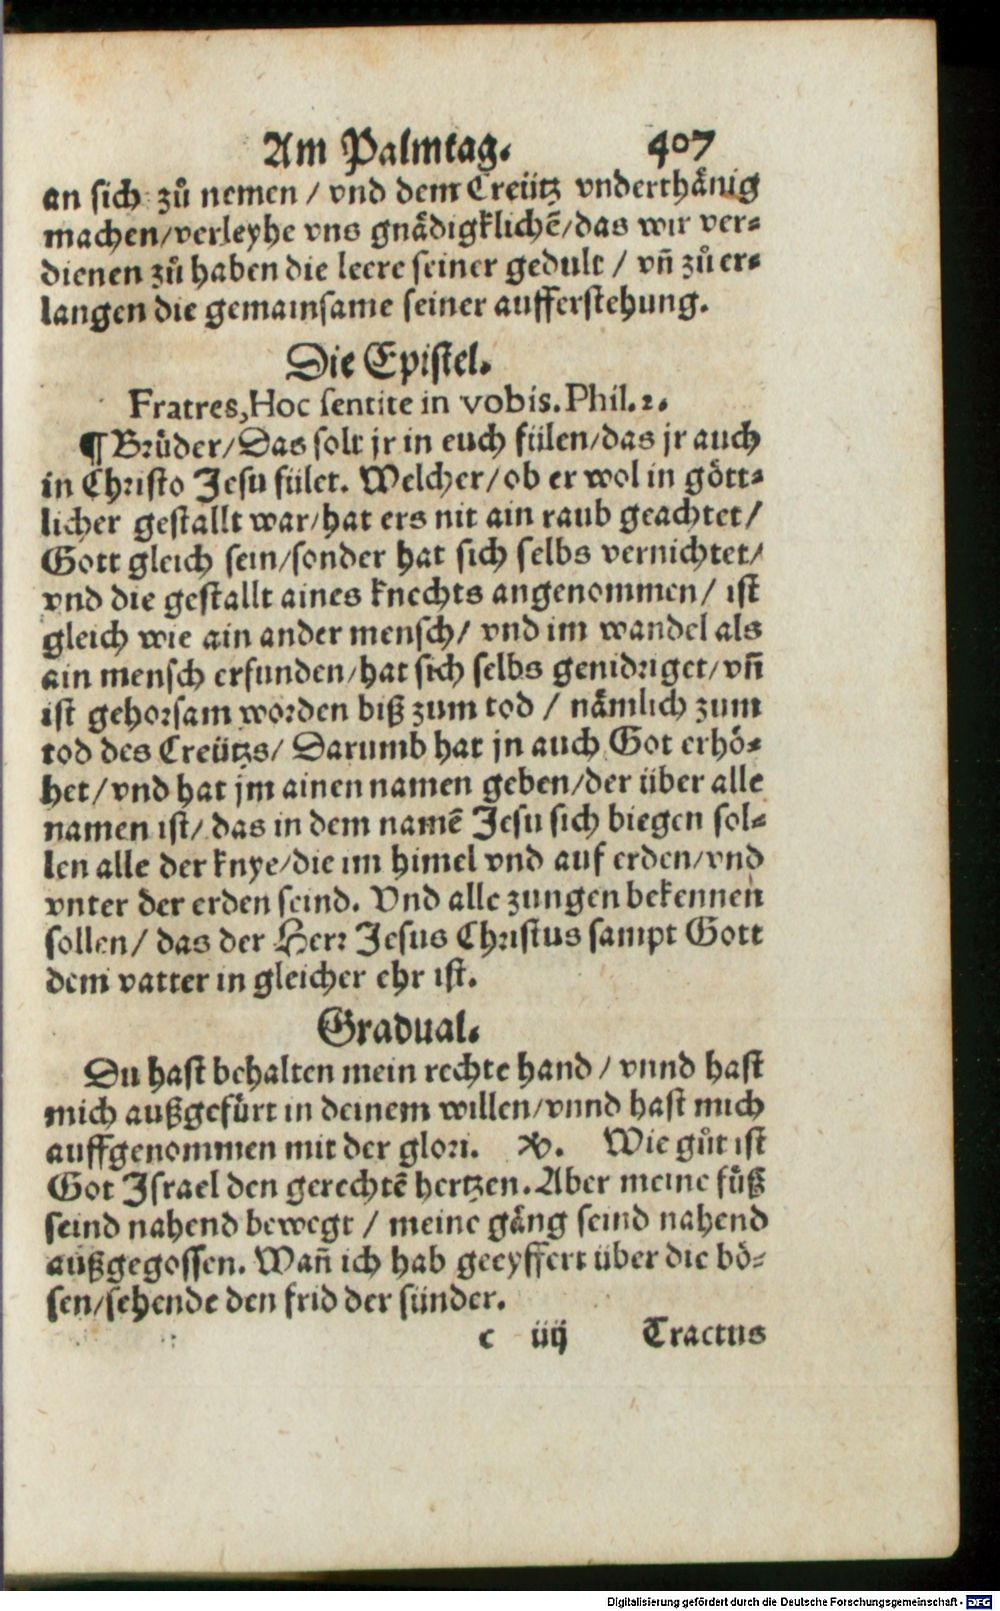 Am Palmtag. 407
an sich zů nemen / vnd dem Creütz vnderthänig
machen/verleyhe vns gnädigklichē/das wir ver-
dienen zů haben die leere seiner gedult / vñ zů er-
langen die gemainsame seiner aufferstehung.
Die Epistel.
Fratres, Hoc sentite in vobis. Phil. 2.
¶ Brüder/Das solt jr in euch fülen/das jr auch
in Christo Jesu fület. Welcher/ob er wol in gött-
licher gestallt war/hat ers nit ain raub geachtet/
Gott gleich sein/sonder hat sich selbs vernichtet/
vnd die gestallt aines knechts angenommen/ ist
gleich wie ain ander mensch/ vnd im wandel als
ain mensch erfunden/hat sich selbs genidriget/vñ
ist gehorsam worden biß zum tod / nämlich zum
tod des Creützs/ Darumb hat jn auch Got erhö-
het/vnd hat jm ainen namen geben/der über alle
namen ist/ das in dem namē Jesu sich biegen sol-
len alle der knye/die im himel vnd auf erden/vnd
vnter der erden seind. Vnd alle zungen bekennen
sollen/ das der Herr Jesus Christus sampt Gott
dem vatter in gleicher ehr ist.
Gradual.
Du hast behalten mein rechte hand / vnnd hast
mich außgefürt in deinem willen/vnnd hast mich
auffgenommen mit der glori. ℣. Wie gůt ist
Got Israel den gerechtē hertzen. Aber meine füß
seind nahend bewegt / meine gäng seind nahend
außgegossen. Wañ ich hab geeyffert über die bö-
sen/sehende den frid der sünder.
c iiij Tractus
Digitalisierung gefördert durch die Deutsche Forschungsgemeinschaft - DFG